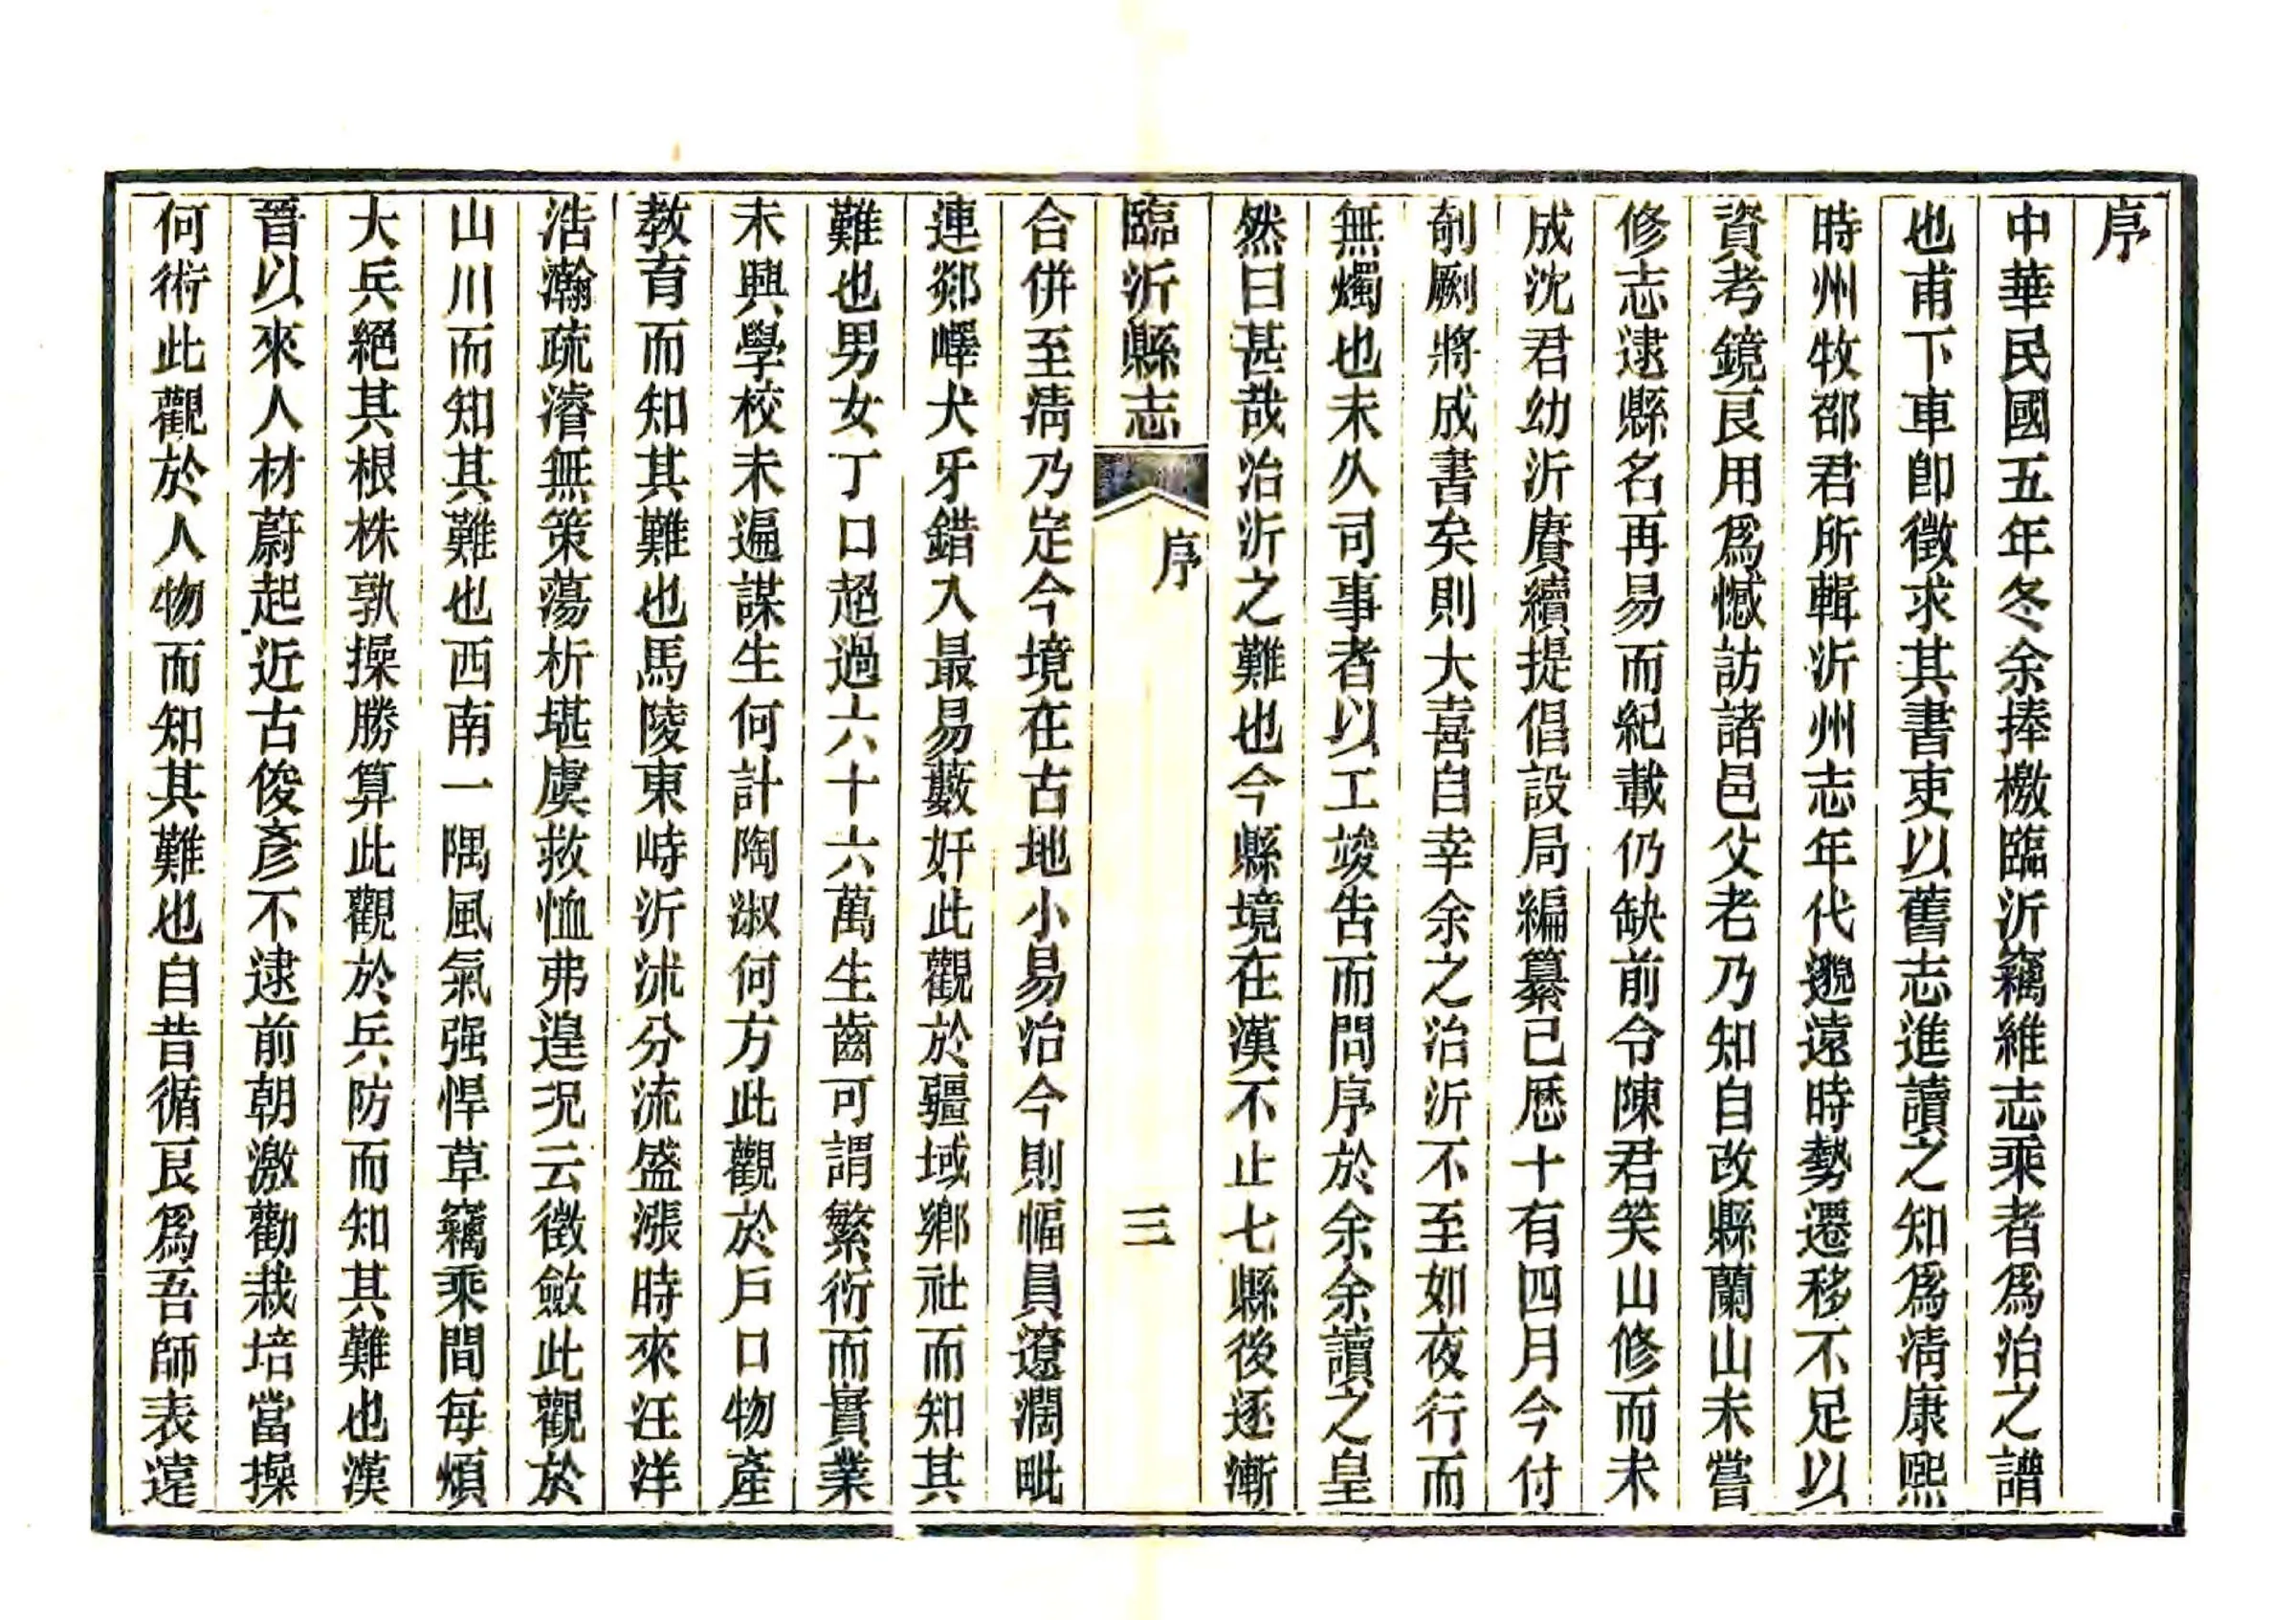 序
中華民國五年冬余捧檄臨沂竊維志乘者爲治之譜
也甫下車卽徵求其書吏以舊志進讀之知爲清康熙
時州牧邵君所輯沂州志年代邈遠時勢遷移不足以
資考鏡良用爲憾訪諸邑父老乃知自改縣蘭山未嘗
修志逮縣名再易而紀載仍缺前令陳君笑山修而未
成沈君幼沂賡續提倡設局編纂已歷十有四月今付
剞劂將成書矣則大喜自幸余之治沂不至如夜行而
無燭也未久司事者以工竣告而問序於余余讀之皇
然曰甚哉治沂之難也今縣境在漢不止七縣後逐漸
臨沂縣志
序
三
合併至清乃定今境在古地小易治今則幅員遼濶毗
連郯嶧犬牙錯入最易藪奸此觀於疆域鄉社而知其
難也男女丁口超過六十六萬生齒可謂繁衍而實業
未興學校未遍謀生何計陶淑何方此觀於戶口物產
教育而知其難也馬陵東峙沂沭分流盛漲時來汪洋
浩瀚疏濬無策蕩析堪虞救恤弗遑況云徵斂此觀於
山川而知其難也西南一隅風氣强悍草竊乘間每煩
大兵絕其根株孰操勝算此觀於兵防而知其難也漢
晉以來人材蔚起近古俊彥不逮前朝激勸栽培當操
何術此觀於人物而知其難也自昔循良爲吾師表遠